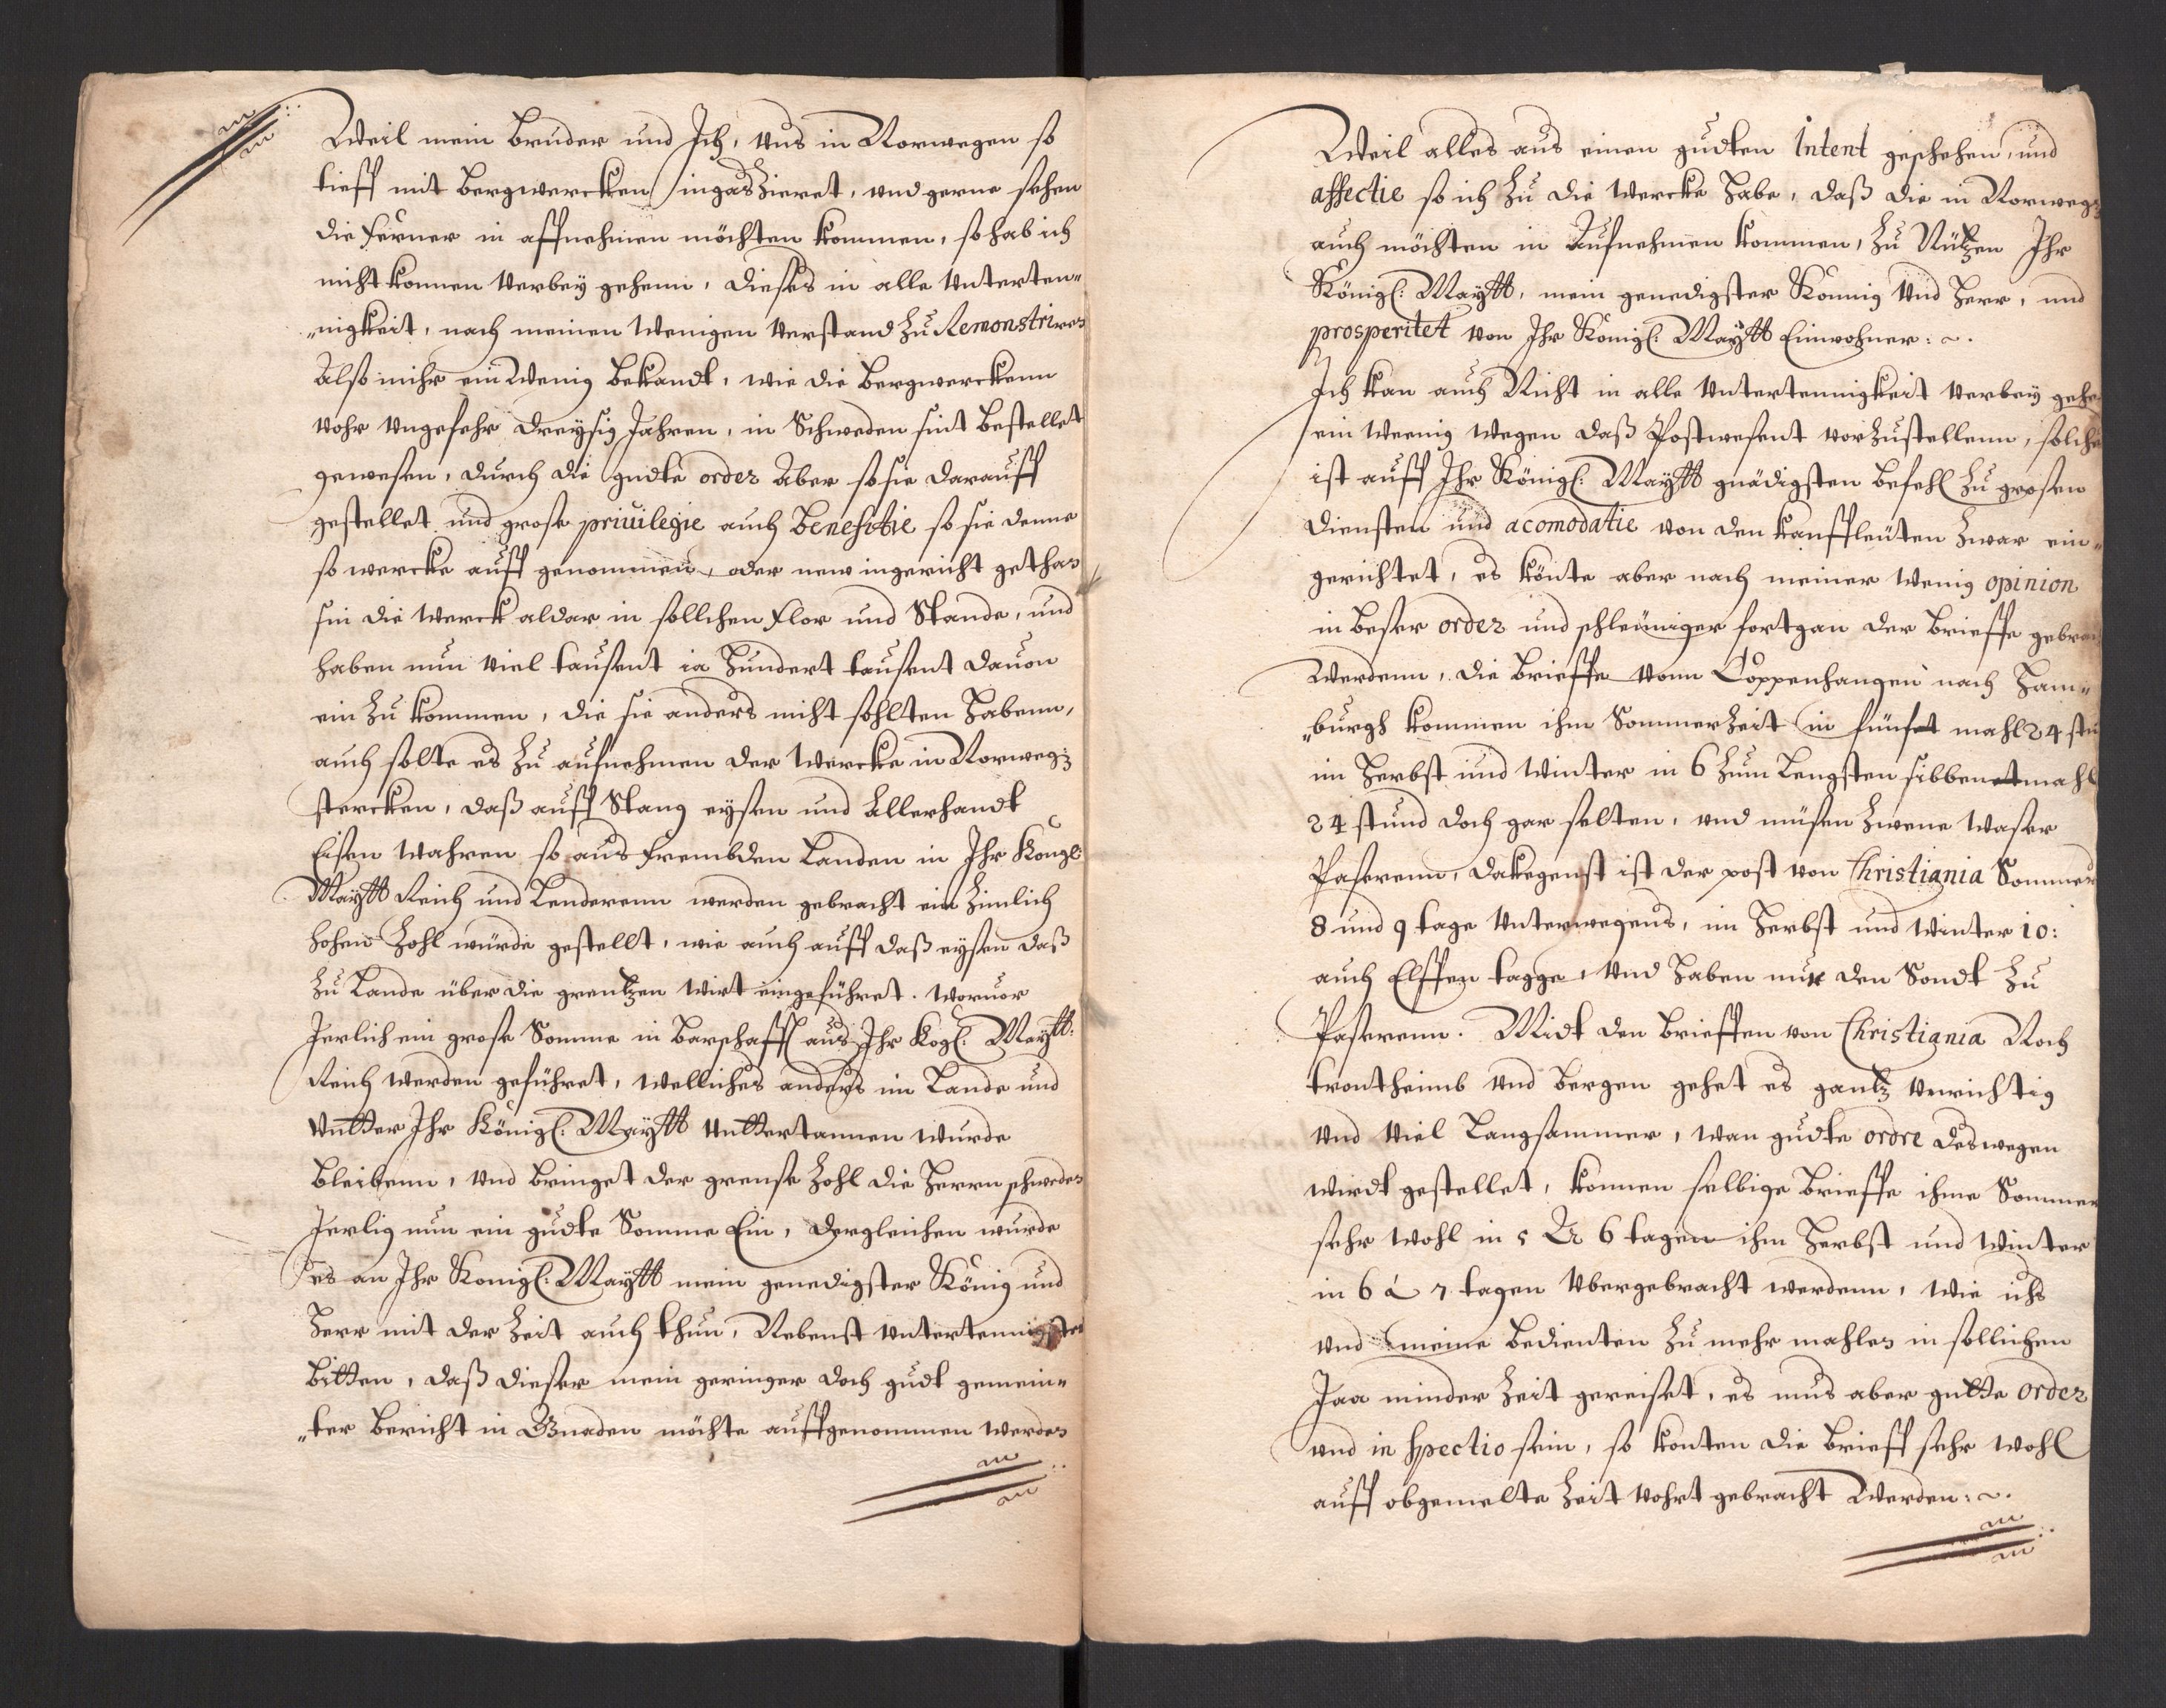 Weil mein Bruder und Ich, uns in Norwegen so
tieff mit Bergwercken ingaszieret, und gerne sehen
die ferner in affnehmen möchten kommen, so hab ich
nicht konnen verbey gehenn, dieses in alle Unterten„
„nigkeit, nach meinen wenigen verstand zu Remonstriren
Also mihr ein wenig bekandt, wie die Bergwerckenn
vohr ungefehr dreysig Jahren, in Schweden sint bestellet
gewesen, durch die gudte order aber so sie darauff
gestellet und grose priuilegie auch Benefitie so sie denne
so wercke auff genommen, oder new ingericht gethan
sin die werck aldar in sollchen flor und Stande, und
haben nun viel tausent ia hundert tausent dauon
ein zu kommen, die sie anders nicht sohlten habenn,
auch solte es zu aufnehmen der wercke in Norweg:
stercken, daß auff Stang eysen und allerhandt
Eisen wahren so aus frembden Landen in Ihr Kongl:
Maytt Reich und Lenderenn werden gebracht ein zimlich
hohen zohl würde gestellt, wie auch auff daß eysen daß
zu Lande über die grentzen wirt eingeführet. woruor
Jerlich ein grose Somme in Barschafft aus Ihr Kogl: Maytt:
Reich werden geführet, welliches anders im Lande und
Untter Ihr Königl: Maytt Unttertannen wurde
bleibenn, und bringet der grense zohl die Herrn schweden
Jerlig nun ein gudte Somme Ein, dergleichen wurde
es an Ihr Konigl: Maytt mein genedigster König und
Herr mit der Zeit auch thun, Nebenst untertennigsten
bitten, daß dieser mein geringer doch gudt gemein„
„ter Bericht in Gnaden möchte auffgenommen werden
Weil alles aus einen gudten Intent geschehen, und
affectie so ich zu die wercke habe, daß die in Norweg:
auch möchten in Aufnehmen kommen, zu Nützen Ihr
Königl: Maytt, mein genedigster Konnig Und Herr, und
prosperitet von Ihr Königl: Maytt Einwohner: ~.
Ich kan auch Nicht in alle Untertennigkeit verbey gehe
ein weenig wegen daß Postwesent vorzustellenn, solche
ist auff Ihr Königl: Maytt gnädigsten befehl zu grosen
diensten und acomodatie von den kauffleuten zwar ein„
gerichtet, es könte aber nach meiner wenig opinion
in beser order und schleuniger fortgan der Brieffe gebra
Werdenn, die Brieffe vonn Coppenhangen nach Ham„
„burgh kommen ihm Sommerzeit in fünfet mahl 24 stu
im Herbst und Winter in 6 zum Lengsten sibbenetmahl
24 stund doch gar selten, und müsen zwene waser
Paserenn, dakegenst ist der post von Christiania Sommer
8 und 9 tage Unterwegens, im Herbst und Winter 10:
auch Elffen tagge, Und haben nur den Sondt zu
Paserenn. Midt den Brieffen von Christiania Noch
trontheimb und Bergen gehet es gantz unrichtig
und viel Langsammer, wan gudte ordre deswegen
wirdt gestellet, konnen selbige Brieffe ihme Sommer
sehr wohl in 5 à 6 tagen ihm Herbst und Winter
in 6 à 7 tagen übergebracht werdenn, wie ichs
und meine bedienten zu mehr mahlen in sollichen
Jaa minder zeit gereiset, es mus aber gutte order
und in spectio sein, so konten die Brieff sehr wohl
auff obgemelte Zeit vohrt gebracht Werden: ~.